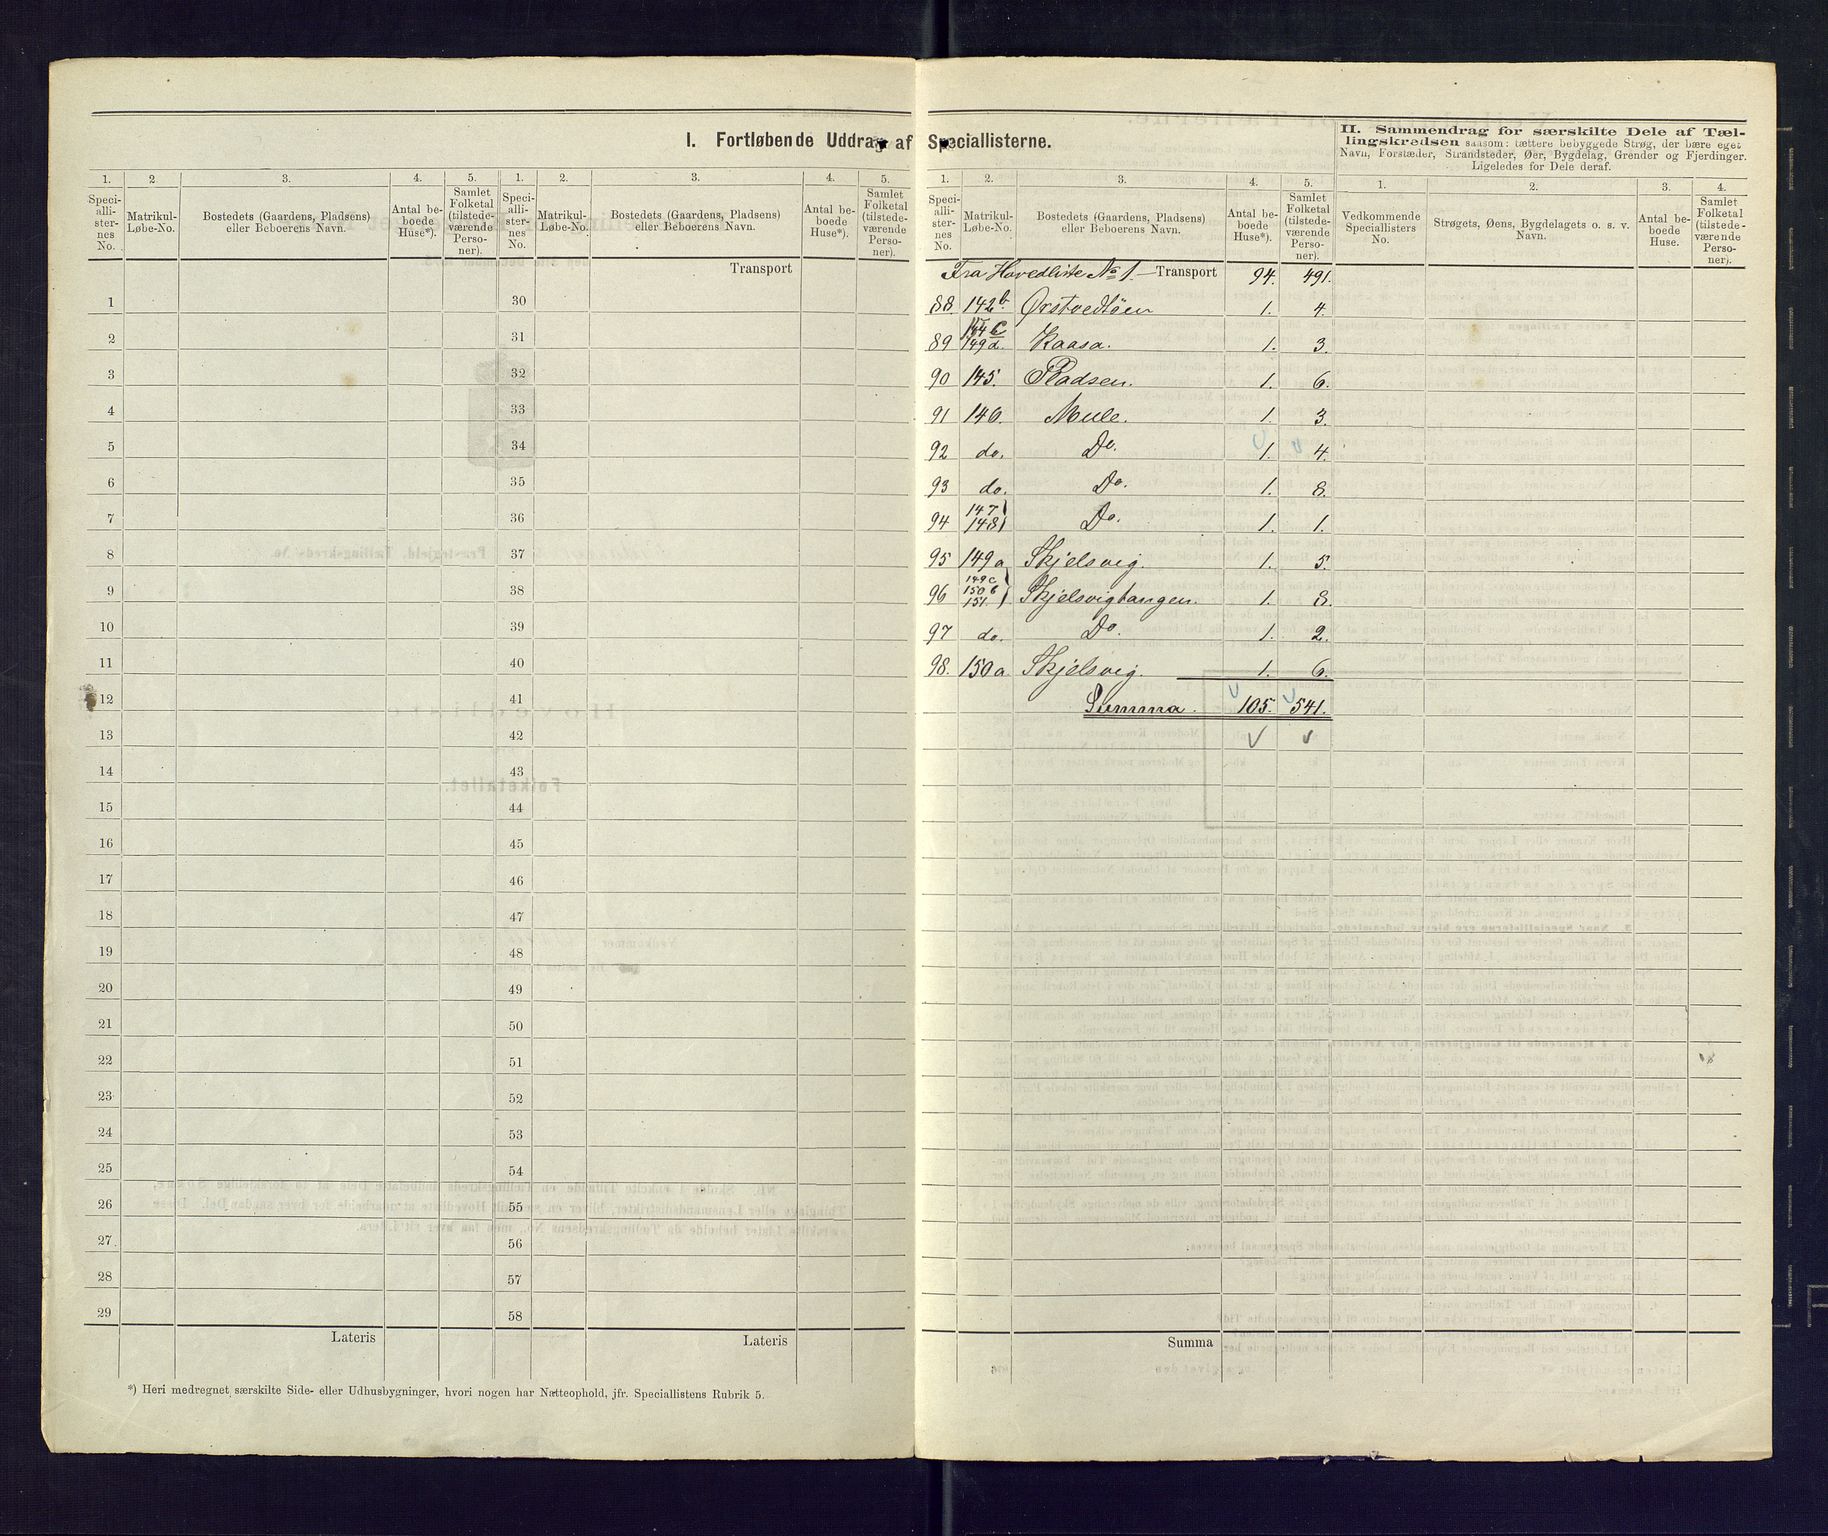 I. Fortløbende Uddrag af Speciallisterne.
1. 2. 3. 4. 5. 1. 2. 3. 4. 5.
Speciallisternes No. Matrikul-Løbe-No. Bostedets (Gaardens, Pladsens) eller Beboerens Navn. Antal beboede Huse*). Samlet Folketal (tilstedeværende Personer). Speciallisternes No. Matrikul-Løbe-No. Bostedets (Gaardens, Pladsens) eller Beboerens Navn. Antal beboede Huse*). Samlet Folketal (tilstedeværende Personer).
Transport
1 30
2 31
3 32
4 33
5 34
6 35
7 36
8 37
9 38
10 39
11 40
12 41
13 42
14 43
15 44
16 45
17 46
18 47
19 48
20 49
21 50
22 51
23 52
24 53
25 54
26 55
27 56
28 57
29 58
Lateris Lateris
*) Heri medregnet særskilte Side- eller Udhusbygninger, hvori nogen har Natteophold, jfr. Speciallistens Rubrik 5.
1. 2. 3. 4. 5.
Speciallisternes No. Matrikul-Løbe-No. Bostedets (Gaardens, Pladsens) eller Beboerens Navn. Antal beboede Huse*). Samlet Folketal (tilstedeværende Personer).
Fra Hovedliste No 1 Transport 94. 491.
88 142b. Ørstvedtøen 1. 4.
89 144c 149d. Kaasa. 1. 3.
90 145. Pladsen. 1. 6.
91 146. Mule. 1. 3.
92 do. Do. 1. 4.
93 do. Do. 1. 8.
94 147 148 Do. 1. 1.
95 149a Skjelsvig. 1. 5.
96 149c 150b 151. Skjelsvigtangen. 1. 8.
97 do. Do. 1. 2.
98. 150a. Skjelsvig. 1. 6.
Summa. 105. 541.
Summa
II. Sammendrag for særskilte Dele af Tæl-
lingskredsen saasom: tættere bebyggede Strøg, der bære eget
Navn, Forstæder, Strandsteder, Øer, Bygdelag, Grender og Fjerdinger.
Ligeledes for Dele deraf.
1. 2. 3. 4.
Vedkommende Speciallisters No. Strøgets, Øens, Bygdelagets o. s. v. Navn. Antal beboede Huse. Samlet Folketal (tilstedeværende Personer).